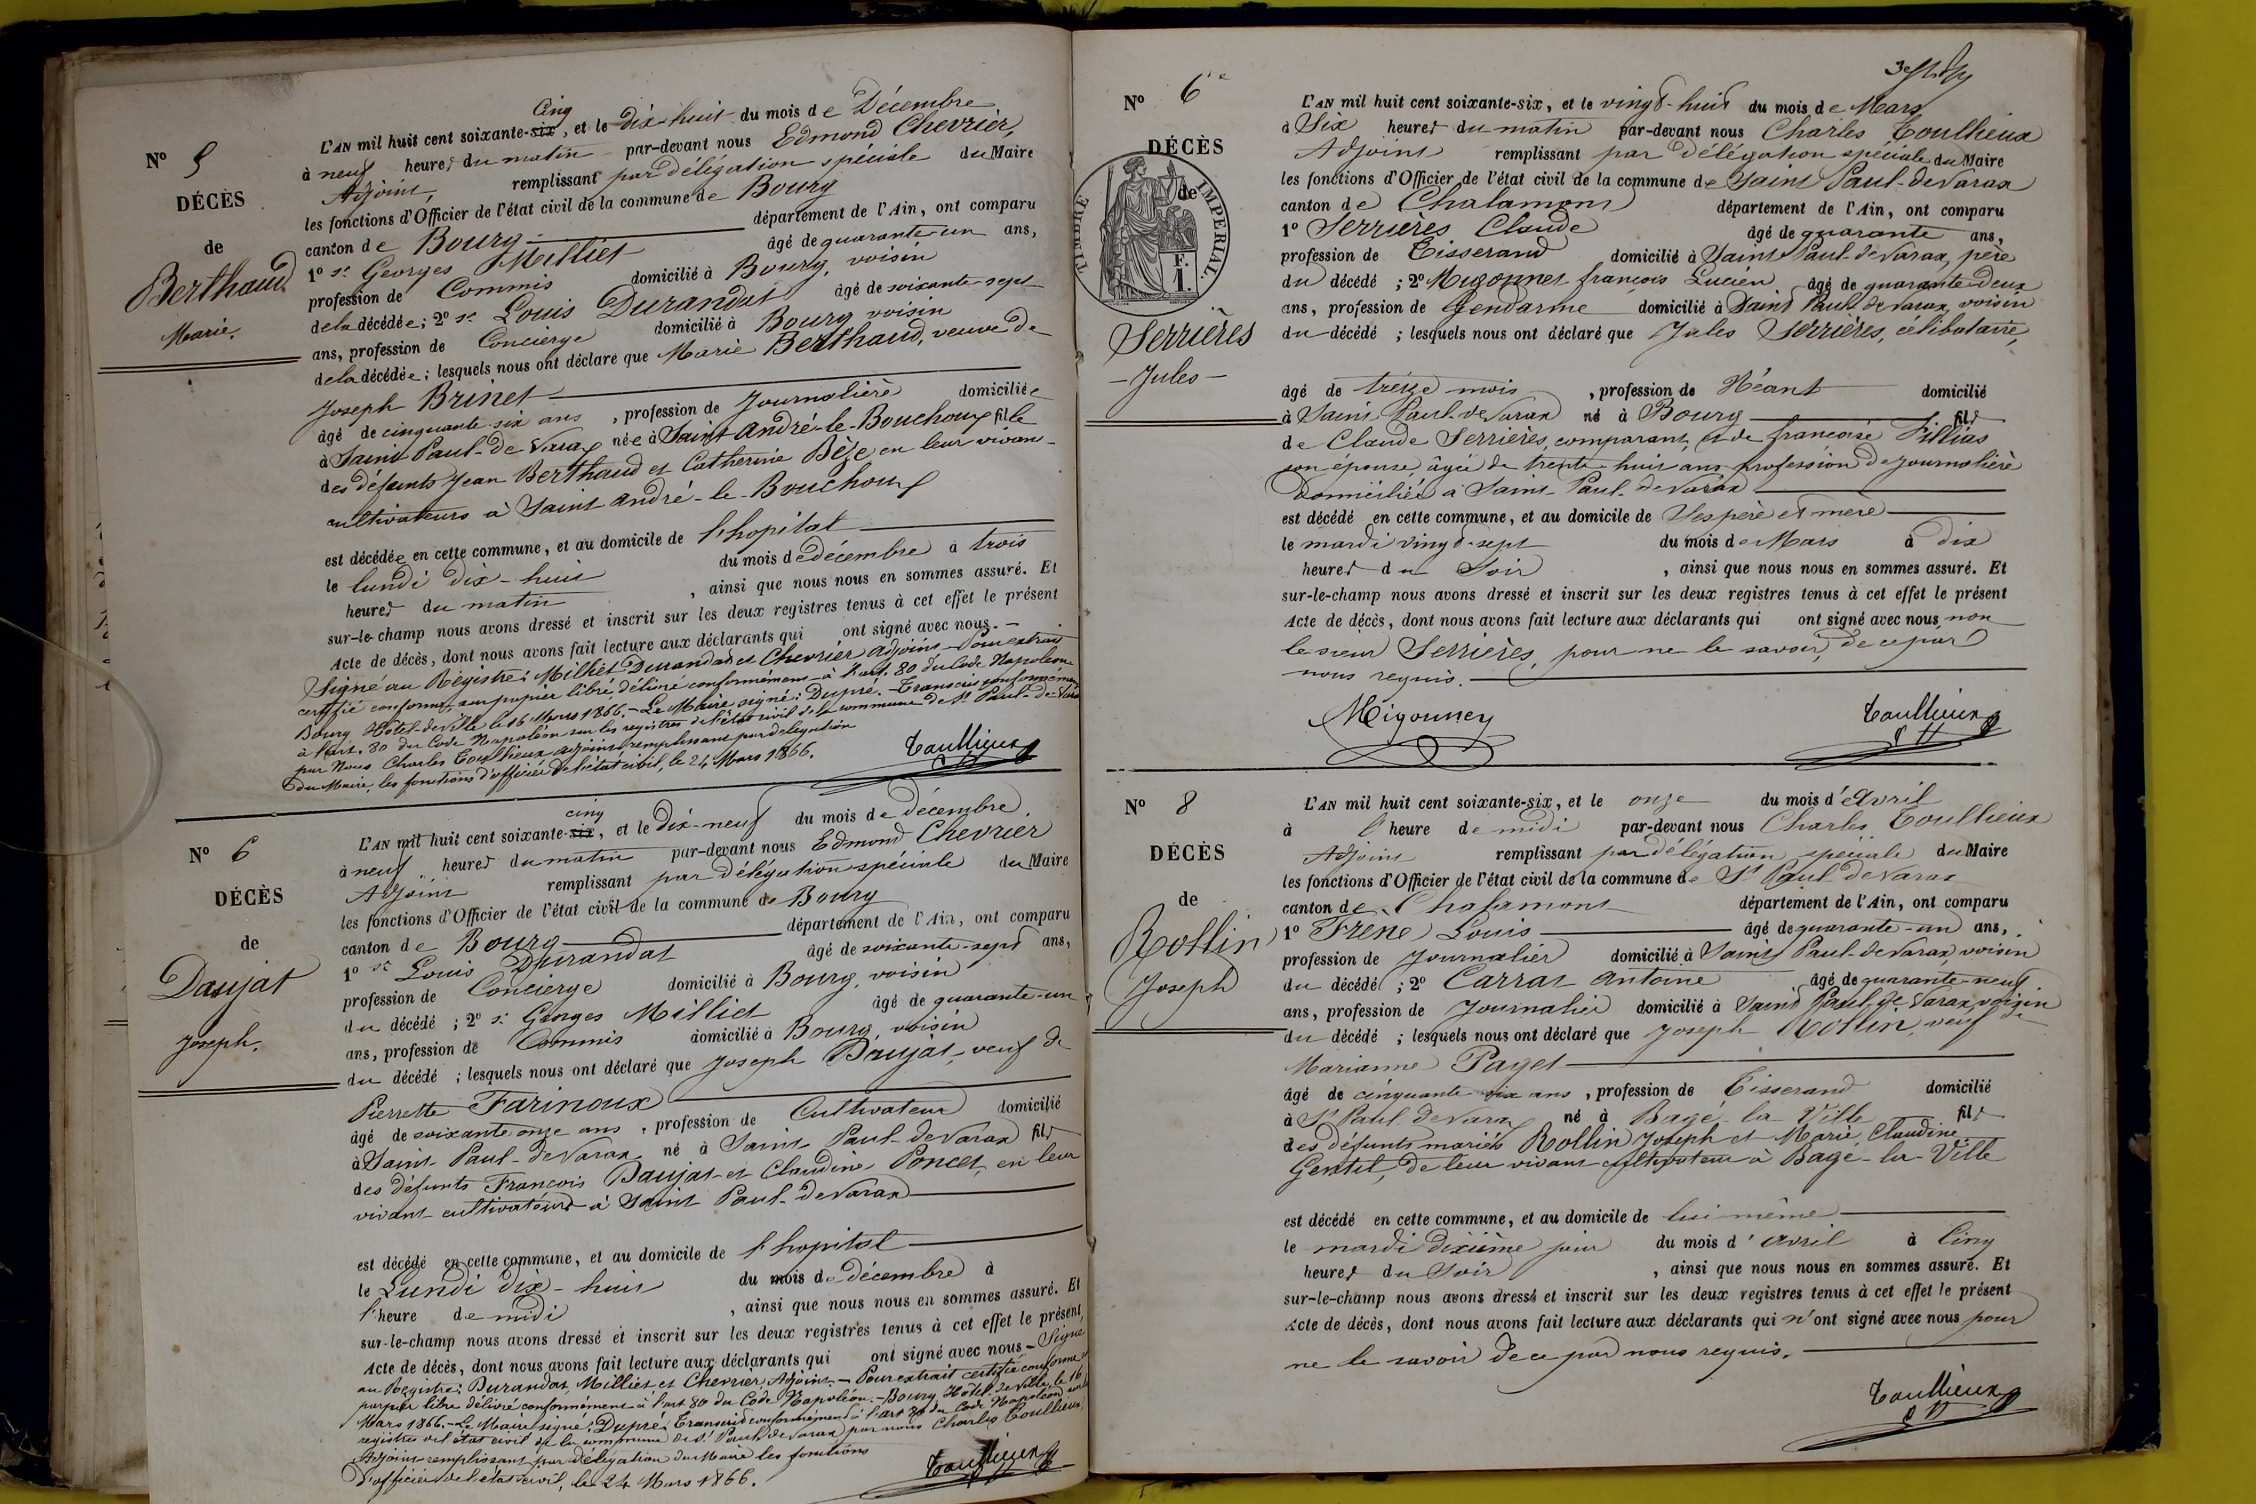 Nº 5
DÉCÈS
de
Berthaud
Marie.
Cinq
L'AN mil huit cent soixante-six, et le dix-huit du mois de Décembre
à neuf heures du matin par-devant nous Edmond Chevrier,
Adjoint, remplissant par délégation spéciale du Maire
les fonctions d'Officier de l'état civil de la commune de Bourg
canton de Bourg département de l'Ain, ont comparu
1º sr Georges Milliet âgé de quarante-un ans,
profession de Commis domicilié à Bourg, voisin
de la décédée; 2º sr Louis Durandat âgé de soixante-sept
ans, profession de Concierge domicilié à Bourg voisin
de la décédée; lesquels nous ont déclaré que Marie Berthaud, veuve de
Joseph Brinet
âgé de cinquante six ans, profession de Journalière domiciliée
à Saint Paul-de Varax née à Saint André-le-Bouchoux fille
des défunts Jean Berthaud et Catherine Bèze en leur vivant
cultivateurs à Saint André-le-Bouchoux
est décédée en cette commune, et au domicile de l'hopital
le lundi dix-huit du mois de décembre à trois
heures du matin, ainsi que nous nous en sommes assuré. Et
sur-le-champ nous avons dressé et inscrit sur les deux registres tenus à cet effet le présent
Acte de décès, dont nous avons fait lecture aux déclarants qui ont signé avec nous.-
Signé au Régistre: Milliet Durandat et Chevrier adjoint - Pour extrait
certifié conforme, sur papier libre, délivré conformément à l'art. 80 du Code Napoléon
Bourg Hôtel-de-Ville le 16 Mars 1866.- Le Maire signé: Dupré.- Transcris conformément
à l'art. 80 du Code Napoléon sur les registres de l'état civil de la commune de St Paul-de-Varax
par Nous Charles Toullieux adjoint remplissant par délégation
du Maire, les fonctions d'officier de l'état civil, le 24 Mars 1866.
Toullieux
Nº 6
DÉCÈS
de
Daujat
Joseph.
cinq
L'AN mil huit cent soixante-six, et le Dix-neuf du mois de décembre
à neuf heures du matin par-devant nous Edmond Chevrier
Adjoint remplissant par délégation spéciale du Maire
les fonctions d'Officier de l'état civil de la commune de Bourg
canton de Bourg département de l'Ain, ont comparu
1º sr Louis Durandat âgé de soixante-sept ans,
profession de Concierge domicilié à Bourg, voisin
du décédé; 2º sr Georges Milliet âgé de quarante-un
ans, profession de Commis domicilié à Bourg, voisin
du décédé; lesquels nous ont déclaré que Joseph Daujat, veuf de
Pierrette Farinoux
âgé de soixante onze ans, profession de Cultivateur domicilié
à Saint-Paul-de Varax né à Saint-Paul-de Varax fils
des défunts François Daujat et Claudine Poncet, en leur
vivant cultivateurs à Saint Paul-de Varax
est décédé en cette commune, et au domicile de l'hopital
le Lundi dix-huit du mois de décembre à
l'heure de midi, ainsi que nous nous en sommes assuré. Et
sur-le-champ nous avons dressé et inscrit sur les deux registres tenus à cet effet le présent
Acte de décès, dont nous avons fait lecture aux déclarants qui ont signé avec nous - Signé
au Régistre: Durandat, Milliet et Chevrier, Adjoint.- Pour extrait certifié conforme
papier libre délivré conformément à l'art 80 du Code Napoléon.- Bourg Hôtel de Ville, le 16
Mars 1866.- Le Maire signé: Dupré. Transcrit conformément à l'art 80 du Code Napoléon sur les
registres de l'état civil de la commune de St Paul de Varax par nous Charles Toullieux
Adjoint remplissant par délégation du Maire les fonctions
d'officier de l'état civil, le 24 Mars 1866.
Toullieux
Nº 6
DÉCÈS
de
TIMBRE IMPÉRIAL
1 F.
Serrières
Jules
L'AN mil huit cent soixante-six, et le vingt-huit du mois de Mars
à Six heures du matin par-devant nous Charles Toullieux
Adjoint remplissant par délégation spéciale du Maire
les fonctions d'Officier de l'état civil de la commune de Saint Paul-de Varax
canton de Chalamont département de l'Ain, ont comparu
1º Serrières Claude âgé de quarante ans,
profession de Tisserand domicilié à Saint Paul-de Varax, père
du décédé; 2º Migonney françois Lucien âgé de quarante deux
ans, profession de Gendarme domicilié à Saint Paul-de Varax, voisin
du décédé; lesquels nous ont déclaré que Jules Serrières, célibataire,
âgé de treize mois, profession de Néant domicilié
à Saint Paul-de Varax né à Bourg fils
de Claude Serrières, comparant, et de françoise Fillias
son épouse, âgée de trente huit ans profession de journalière
domiciliée à Saint-Paul-de Varax
est décédé en cette commune, et au domicile de Ses père et mère
le mardi vingt-sept du mois de Mars à dix
heures du Soir, ainsi que nous nous en sommes assuré. Et
sur-le-champ nous avons dressé et inscrit sur les deux registres tenus à cet effet le présent
Acte de décès, dont nous avons fait lecture aux déclarants qui ont signé avec nous, non
le sieur Serrières, pour ne le savoir, de ce par
nous requis.
Migonney
Toullieux
Nº 8
DÉCÈS
de
Rollin
Joseph
L'AN mil huit cent soixante-six, et le onze du mois d'Avril
à l'heure de midi par-devant nous Charles Toullieux
Adjoint remplissant par délégation spéciale du Maire
les fonctions d'Officier de l'état civil de la commune de St Paul de Varax
canton de Chalamont département de l'Ain, ont comparu
1º Frène Louis âgé de quarante-un ans,
profession de Journalier domicilié à Saint Paul-de Varax, voisin
du décédé; 2º Carras Antoine âgé de quarante-neuf
ans, profession de Journalier domicilié à Saint Paul-de Varax, voisin
du décédé; lesquels nous ont déclaré que Joseph Rollin, veuf de
Marianne Paget
âgé de cinquante six ans, profession de Tisserand domicilié
à St Paul de Varax né à Bagé-la-Ville fils
des défunts mariés Rollin Joseph et Marie, Claudine
Gentil, de leur vivant cultivateur à Bagé-la-Ville
est décédé en cette commune, et au domicile de lui même
le mardi dixième jour du mois d'avril à Cinq
heures du Soir, ainsi que nous nous en sommes assuré. Et
sur-le-champ nous avons dressé et inscrit sur les deux registres tenus à cet effet le présent
Acte de décès, dont nous avons fait lecture aux déclarants qui n'ont signé avec nous pour
ne le savoir de ce par nous requis.
Toullieux